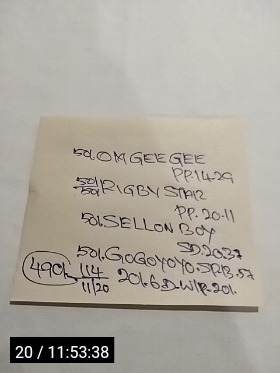 50l.OMGEEGEE
PP.14.29
50l/50l RIGBY STAR
PP.20.11
50l.SELLON BOY
SD.20.37
50l.GOGOYOYO.SRB.57
490l. 114 20l.6D.W/P.20l.
11/20
20 / 11:53:38